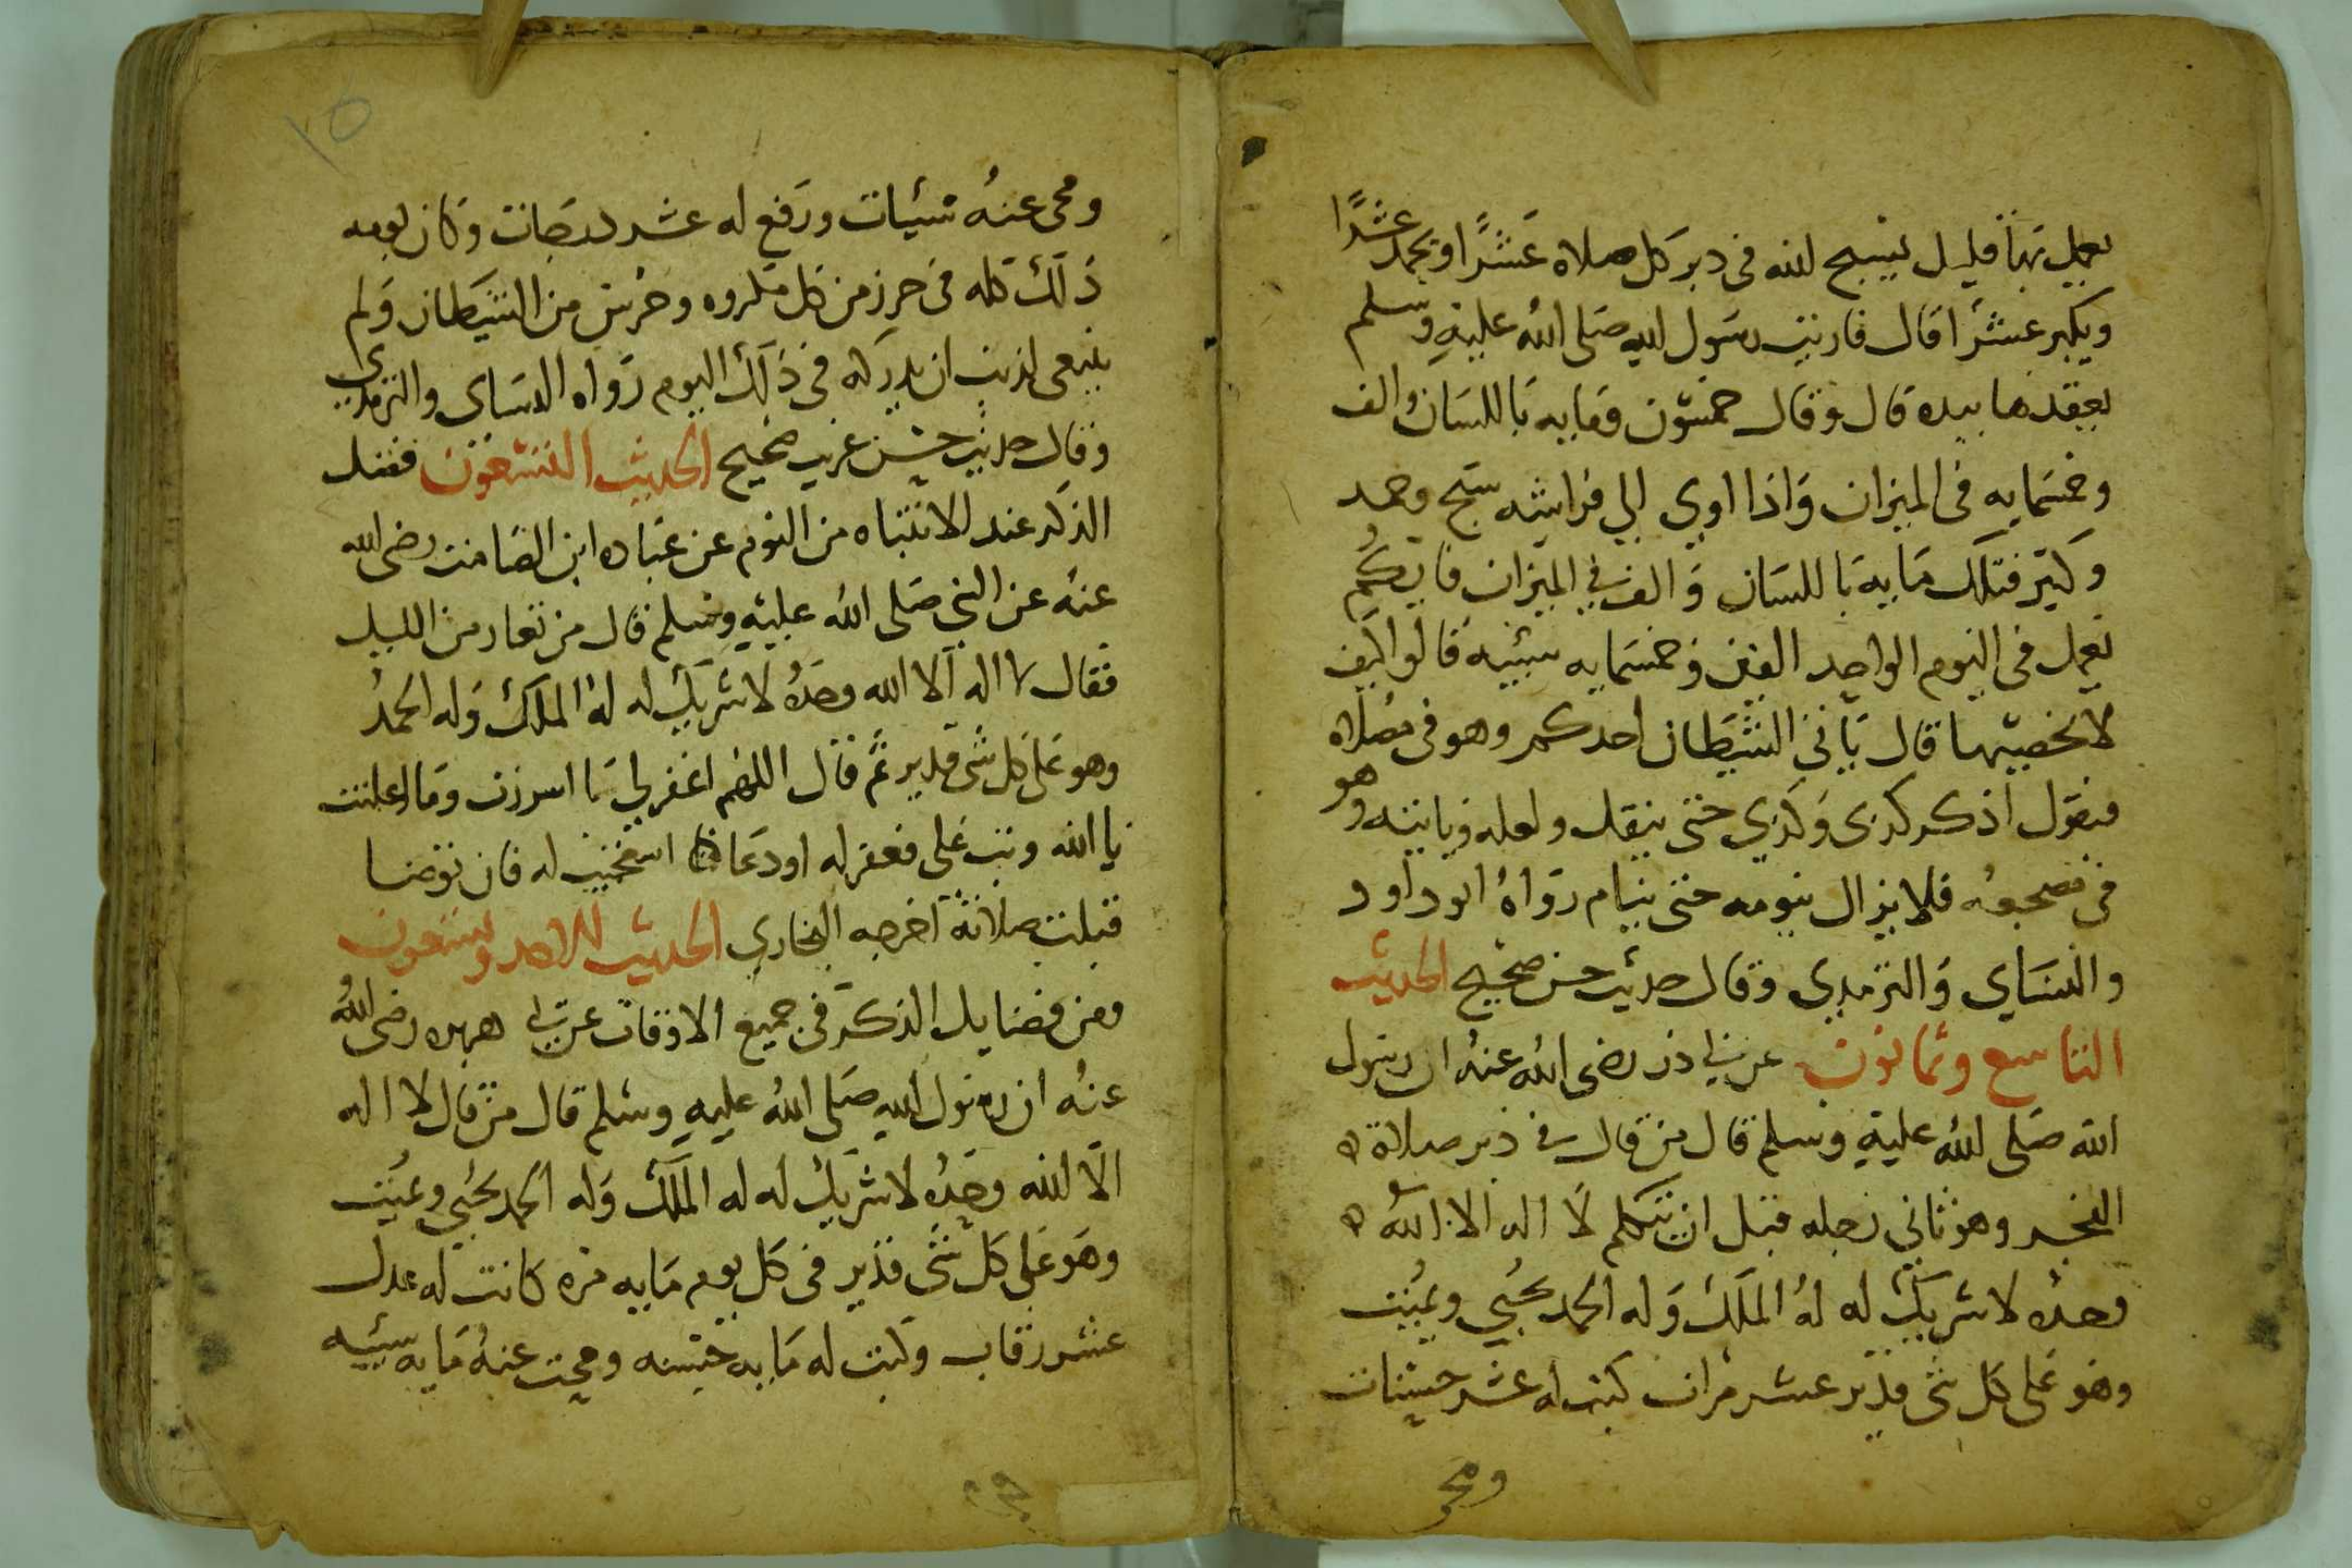 يعمل بها قليل يسبح الله في دبر كل صلاه عشرًا ويحمد عشرًا
ويكبر عشرا قال فاريت رسول الله صلى الله عليه وسلم
يعقدها بيده قال وقال خمسون ومايه باللسان والف
وخمسمايه في الميزان واذا اوي الي فراشه سبح وحمد
وكبر فتلك مايه باللسان والف في الميزان فايكم
يعمل في اليوم الواحد الفين وخمسمايه سييه قالو اكيف
لا نحصيها قال ياتي الشيطان احدكم وهو في صلاه
فيقول اذكر كدى وكدي حتى ينقل ولعله وياتيه وهو
في مضجعه فلا يزال ينومه حتى ينام رواه ابو داود
والنساي والترمدي وقال حديث حسن صحيح الحديث
التاسع وثمانون عن ابي ذر رضى الله عنه ان رسول
الله صلى الله عليه وسلم قال من قال في دبر صلاة
الفجر وهو ثاني رجله قبل ان يتكلم لا اله الا الله
وحده لا شريك له له الملك وله الحمد يحيي ويميت
وهو على كل شى قدير عشر مرات كتب له عشر حسنات
ومحى
١٥
ومحى عنه سيئات ورفع له عشر درجات وكان يومه
ذلك كله في حرز من كل مكروه وحرس من الشيطان ولم
ينبغى لذنب ان يدركه في ذلك اليوم رواه النساى والترمدي
وقال حديث حسن غريب صحيح الحديث التسعون فضل
الذكر عند الانتباه من النوم عن عباده ابن الصامت رضى الله
عنه عن النبي صلى الله عليه وسلم قال من تعار من الليل
فقال لا اله الا الله وحده لا شريك له له الملك وله الحمد
وهو على كل شى قدير ثم قال اللهم اغفر لي ما اسررت وما اعلنت
يا الله وتب على فغفر له او دعا استجيب له فان توضا
قبلت صلاته اخرجه البخاري الحديث الاحد وتسعون
ومن فضايل الذكر في جميع الاوقات عن ابي هريره رضى الله
عنه ان رسول الله صلى الله عليه وسلم قال من قال لا اله
الا الله وحده لا شريك له له الملك وله الحمد يحيي ويميت
وهو على كل شى قدير في كل يوم مايه مره كانت له عدل
عشر رقاب وكتبت له مايه حسنه ومحيت عنه مايه سييه